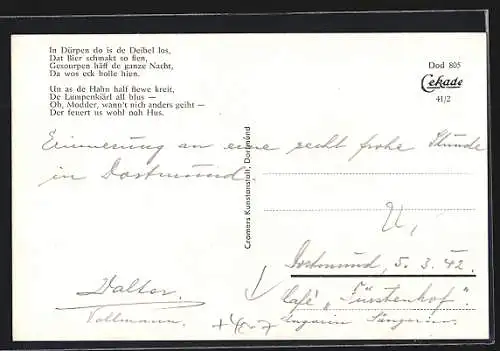 In Dürpen do is de Deibel los,
Dat Bier schmakt so fien,
Gesourpen häff de ganze Nacht,
Da wos eck bolle hien.
Un as de Hahn half fiewe kreit,
De Lumpenkärl all blus —
Oh, Modder, wann't nich anders geiht —
Der feuert us wohl noh Hus.
Dod 805
Cekade
41/2
Cramers Kunstanstalt, Dortmund
Erinnerung an eine recht frohe Stunde
in Dortmund
Dortmund, 5. 3. 42.
Café „Fürstenhof".
Walter
Vollmann.
Ungarin Sängerin